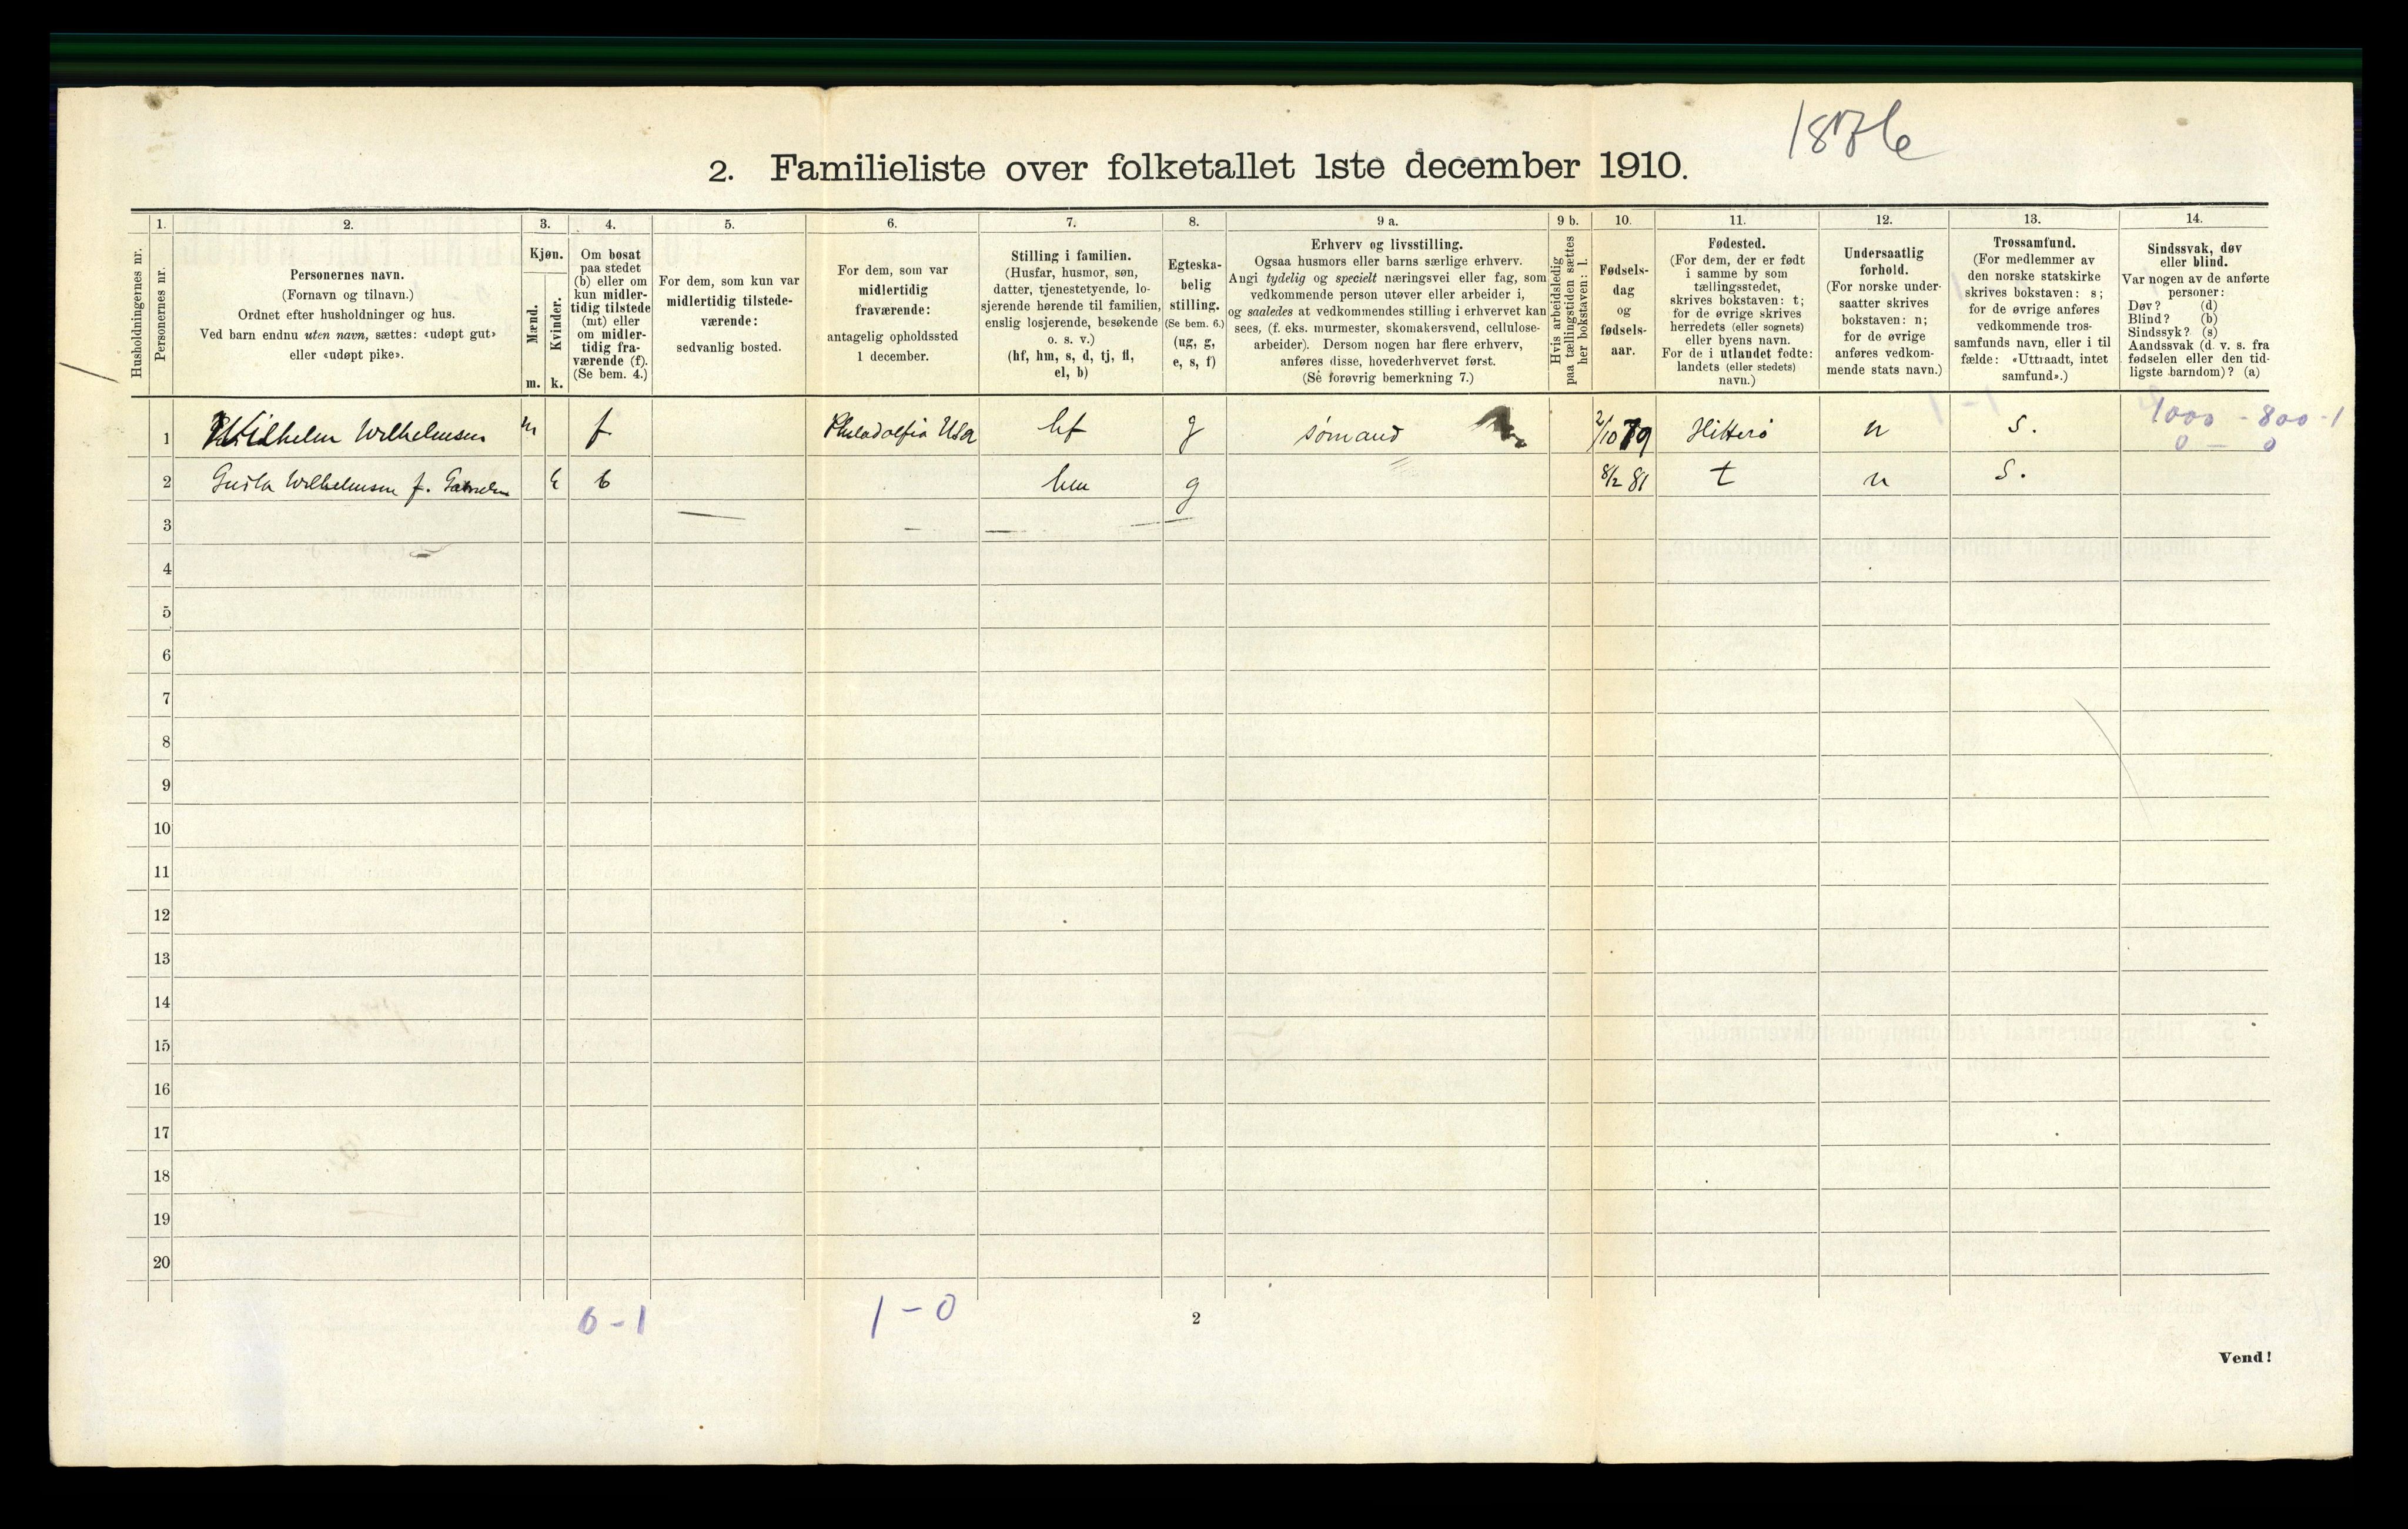 1876
2. Familieliste over folketallet 1ste december 1910.
1. 2. 3. 4. 5. 6. 7. 8. 9 a. 9 b. 10. 11. 12. 13. 14.
Husholdningernes nr.
Personernes nr.
Personernes navn.
(Fornavn og tilnavn.)
Ordnet efter husholdninger og hus.
Ved barn endnu uten navn, sættes: «udøpt gut»
eller «udøpt pike».
Kjøn.
Mænd.
Kvinder.
m. k.
Om bosat
paa stedet
(b) eller om
kun midler-
tidig tilstede
(mt) eller
om midler-
tidig fra-
værende (f).
(Se bem. 4.)
For dem, som kun var
midlertidig tilstede-
værende:
sedvanlig bosted.
For dem, som var
midlertidig
fraværende:
antagelig opholdssted
1 december.
Stilling i familien.
(Husfar, husmor, søn,
datter, tjenestetyende, lo-
sjerende hørende til familien,
enslig losjerende, besøkende
o. s. v.)
(hf, hm, s, d, tj, fl,
el, b)
Egteska-
belig
stilling.
(Se bem. 6.)
(ug, g,
e, s, f)
Erhverv og livsstilling.
Ogsaa husmors eller barns særlige erhverv.
Angi tydelig og specielt næringsvei eller fag, som
vedkommende person utøver eller arbeider i,
og saaledes at vedkommendes stilling i erhvervet kan
sees, (f. eks. murmester, skomakersvend, cellulose-
arbeider). Dersom nogen har flere erhverv,
anføres disse, hovederhvervet først.
(Se forøvrig bemerkning 7.)
Hvis arbeidsledig
paa tællingstiden sættes
her bokstaven: l.
Fødsels-
dag
og
fødsels-
aar.
Fødested.
(For dem, der er født
i samme by som
tællingsstedet,
skrives bokstaven: t;
for de øvrige skrives
herredets (eller sognets)
eller byens navn.
For de i utlandet fødte:
landets (eller stedets)
navn.)
Undersaatlig
forhold.
(For norske under-
saatter skrives
bokstaven: n;
for de øvrige
anføres vedkom-
mende stats navn.)
Trossamfund.
(For medlemmer av
den norske statskirke
skrives bokstaven: s;
for de øvrige anføres
vedkommende tros-
samfunds navn, eller i til
fælde: «Uttraadt, intet
samfund».)
Sindssvak, døv
eller blind.
Var nogen av de anførte
personer:
Døv? (d)
Blind? (b)
Sindssyk? (s)
Aandssvak (d. v. s. fra
fødselen eller den tid-
ligste barndom)? (a)
1 Wilhelm Wilhelmsen m f Philadelfia USA hf g sømand 2/10 79 Hitterø n s. 1000 - 800 - 1
0 — 0
2 Gusta Wilhelmsen f. k b hm g 8/2 81 t n s.
3
4
5
6
7
8
9
10
11
12
13
14
15
16
17
18
19
20
0 - 1 1 - 0
2
Vend!